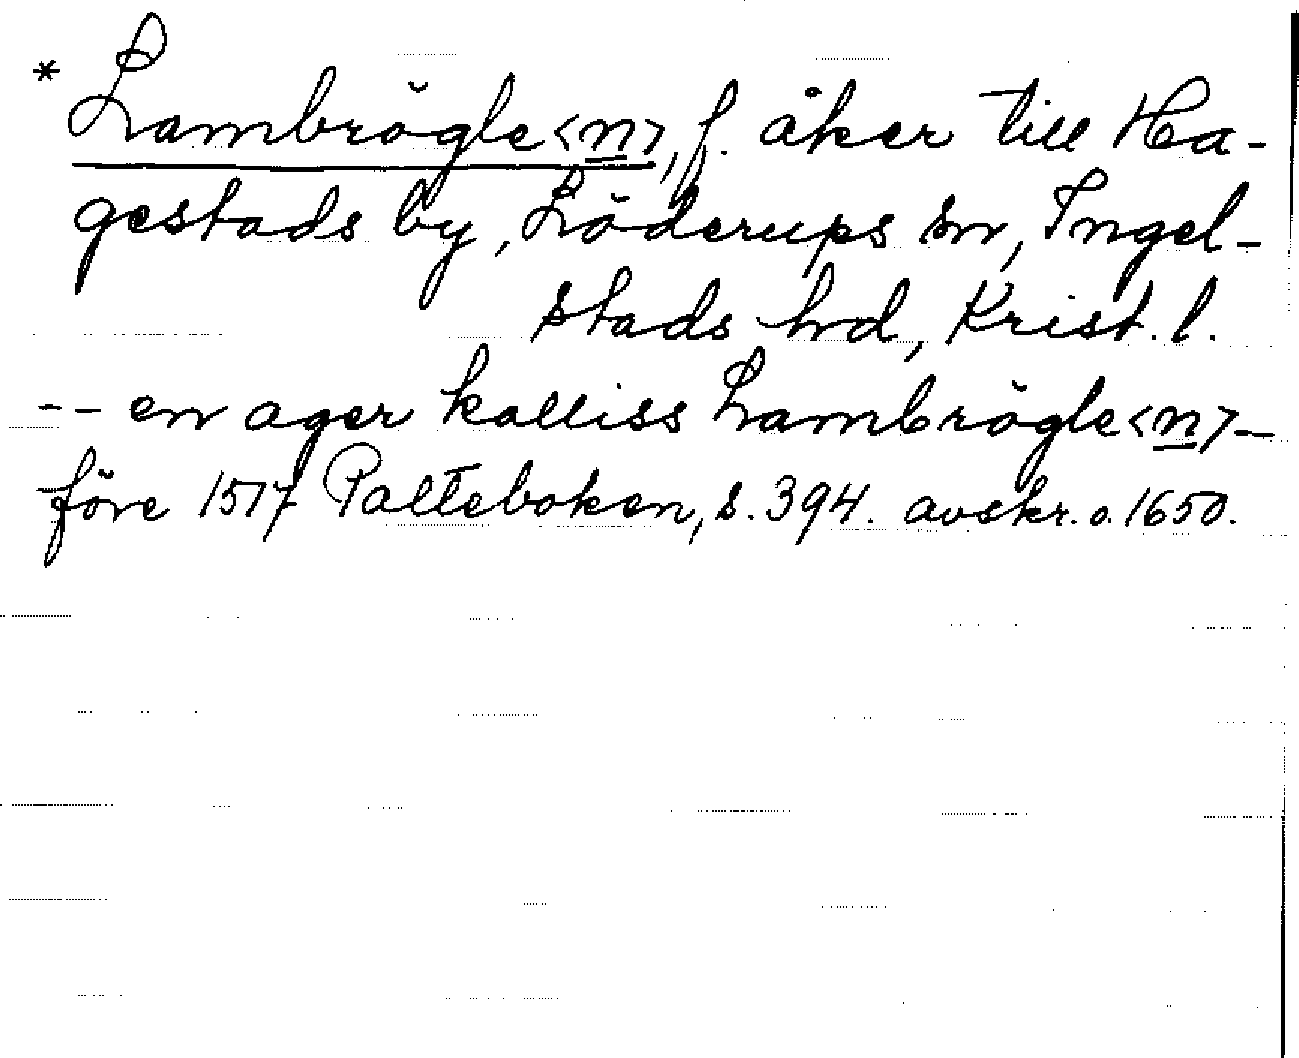 * Lambrögle<n>, f. åker till Ha-
gestads by, Löderups sn, Ingel-
stads hrd, Krist. l.
-- en ager kalliss Lambrögle<n> -
före 1517 Palteboken, s. 394. avskr. o. 1650.